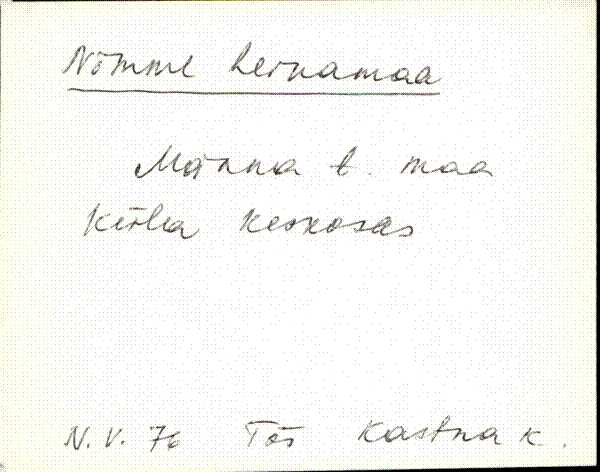 Nõmme heinamaa
Männa t. maa
Külla keskosas
N.V. 76 Tõs Kastna k.